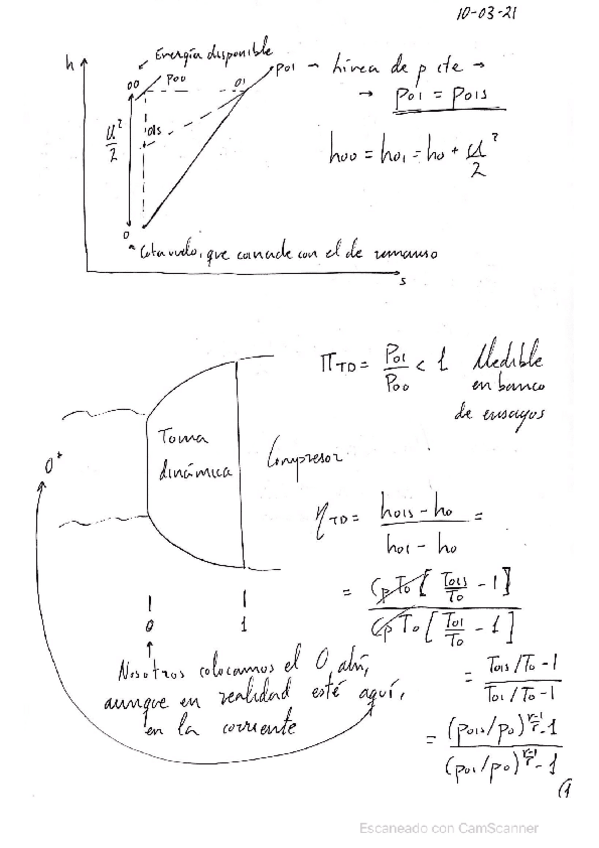 10-03-21
Energía disponible
h
00
P00
01
P01 → Línea de p cte →
→ P01 = P01s
u²/2
01s
h00 = h01 = h0 + u²/2
0
Cota vuelo, que coincide con el de remanso
s
ΠTD = P01/P00 < 1 Medible
en banco
de ensayos
Toma
dinámica
Compresor
0*
ηTD = (h01s - h0)/(h01 - h0) =
= CpT0[T01s/T0 - 1]/CpT0[T01/T0 - 1]
0
1
Nosotros colocamos el 0 ahí,
aunque en realidad esté aquí,
en la corriente
= (T01s/T0 - 1)/(T01/T0 - 1)
= ((p01s/p0)^((γ-1)/γ) - 1)/((p01/p0)^((γ-1)/γ) - 1)
(1
Escaneado con CamScanner